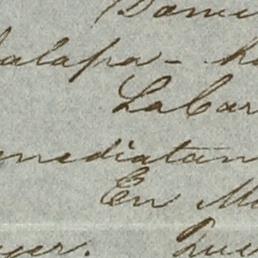 Domi
alapa - 
La Car
mediatan
En M
yer. Que